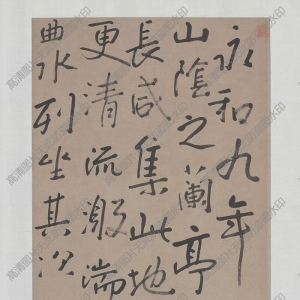 永和九年
山陰之蘭亭
長咸集此地
更清流激湍
曲水列坐其次